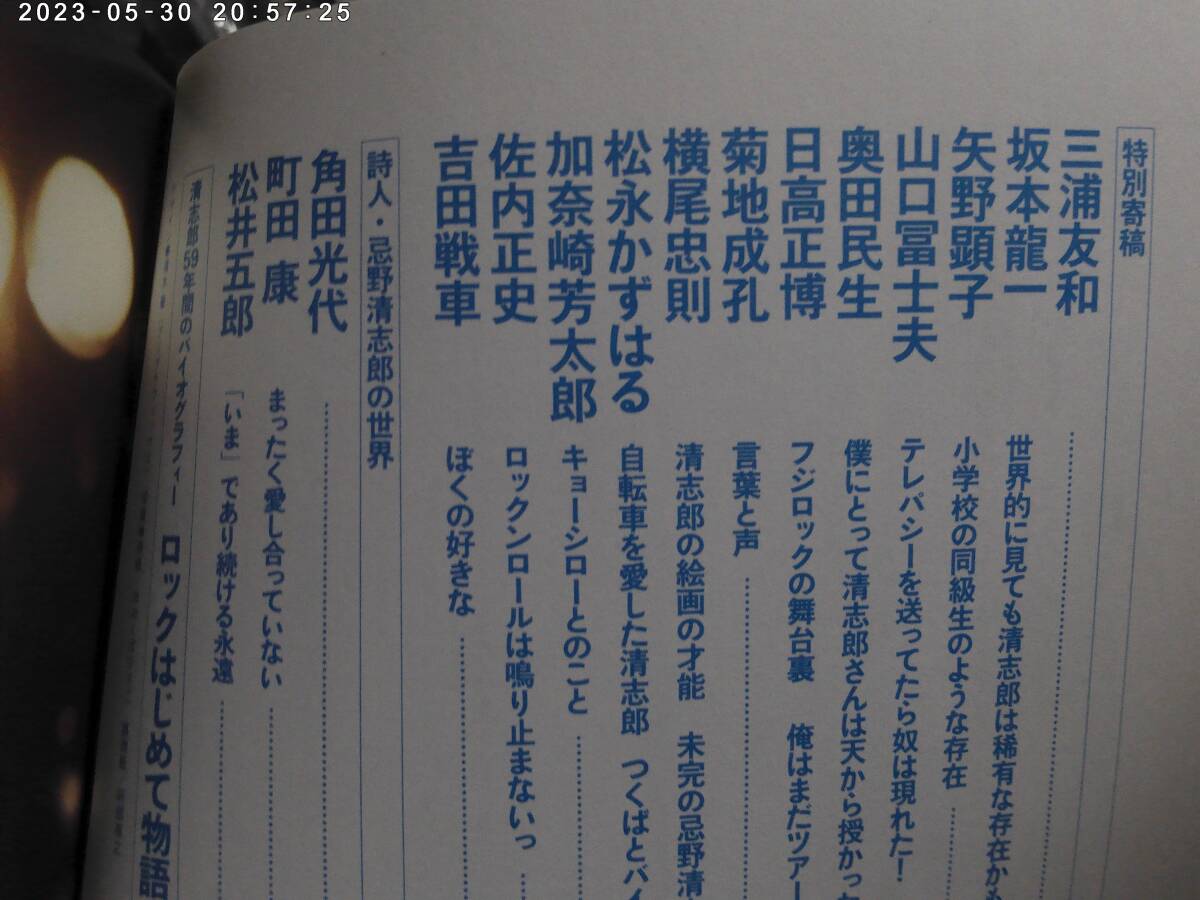 2023-05-30 20:57:25
特別寄稿
三浦友和
坂本龍一 世界的に見ても清志郎は稀有な存在かも
矢野顕子 小学校の同級生のような存在
山口冨士夫 テレパシーを送ってたら奴は現れた!
奥田民生 僕にとって清志郎さんは天から授かっ
日高正博 フジロックの舞台裏 俺はまだツアー
菊地成孔 言葉と声
横尾忠則 清志郎の絵画の才能 未完の忌野清
松永かずはる 自転車を愛した清志郎 つくばとバイ
加奈崎芳太郎 キヨーシローとのこと
佐内正史 ロックンロールは鳴り止まないっ
吉田戦車 ぼくの好きな
詩人・忌野清志郎の世界
角田光代
町田 康 まったく愛し合っていない
松井五郎 「いま」であり続ける永遠
清志郎59年間のバイオグラフィー ロックはじめて物語